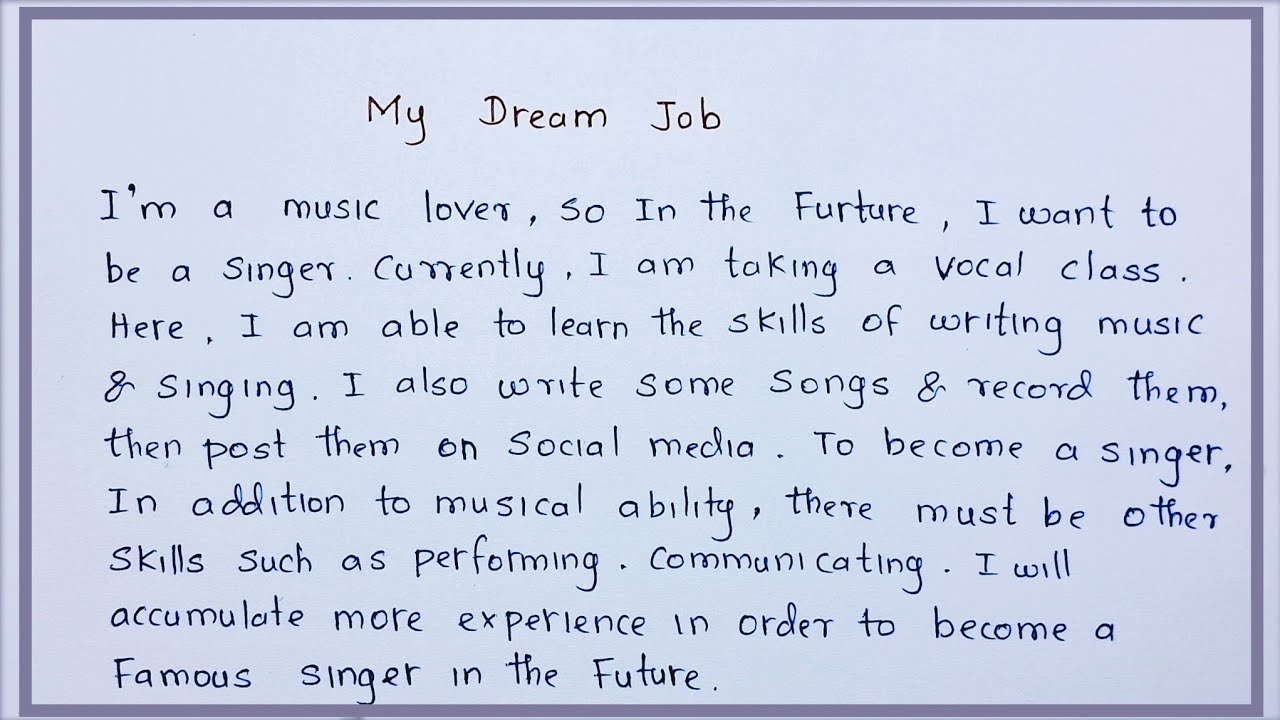 My Dream Job
I'm a music lover, so In the Furture, I want to
be a singer. Currently, I am taking a vocal class.
Here, I am able to learn the skills of writing music
& singing. I also write some songs & record them,
then post them on Social media. To become a singer,
In addition to musical ability, there must be other
skills such as performing. Communicating. I will
accumulate more experience in order to become a
Famous singer in the Future.